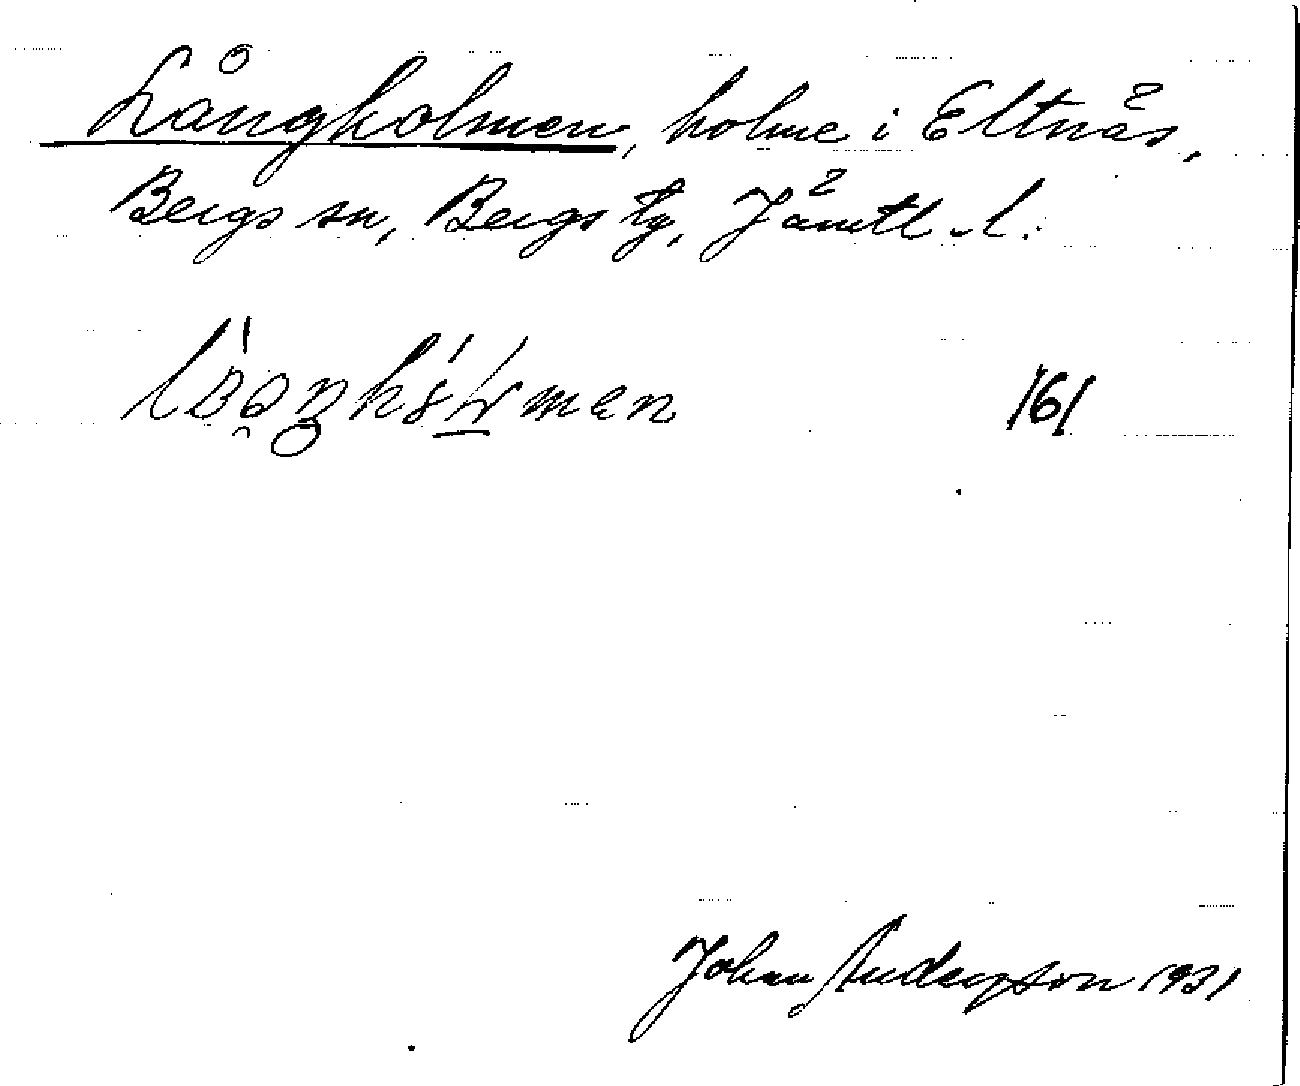 Långholmen, holme i Eltnäs,
Bergs sn, Bergs tg, Jämtl. l.
161
Johan Andersson 1931